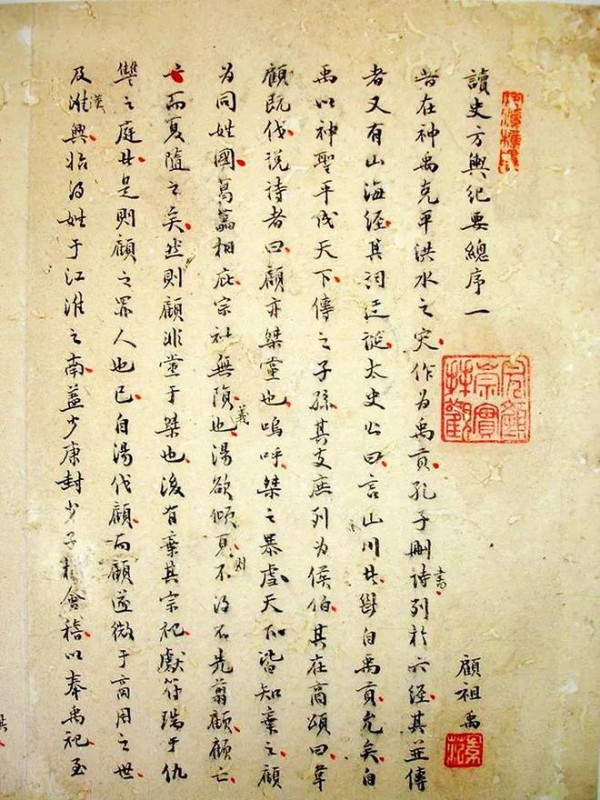 讀史方輿紀要總序一 顧祖禹
昔在神禹克平洪水之灾作為禹貢孔子刪詩書列於六經其並傳
者又有山海經其詞迂誕太史公曰言山川者斷自禹貢允矣自
禹以神聖平成天下傳之子孫其支庶列為侯伯其在商頌曰韋
顧既伐說詩者曰顧亦桀黨也嗚呼桀之暴虐天下皆知棄之顧
為同姓國葛藟相庇宗社無隕義也湯欲傾夏則不得不先翦顧顧亡
而夏隨之矣然則顧非黨于桀也後有棄其宗祀獻符瑞于仇
讐之庭者是則顧之罪人也已自湯伐顧而顧遂微于商周之世
及漢興始得姓于江淮之南蓋少康封少子於會稽以奉禹祀至